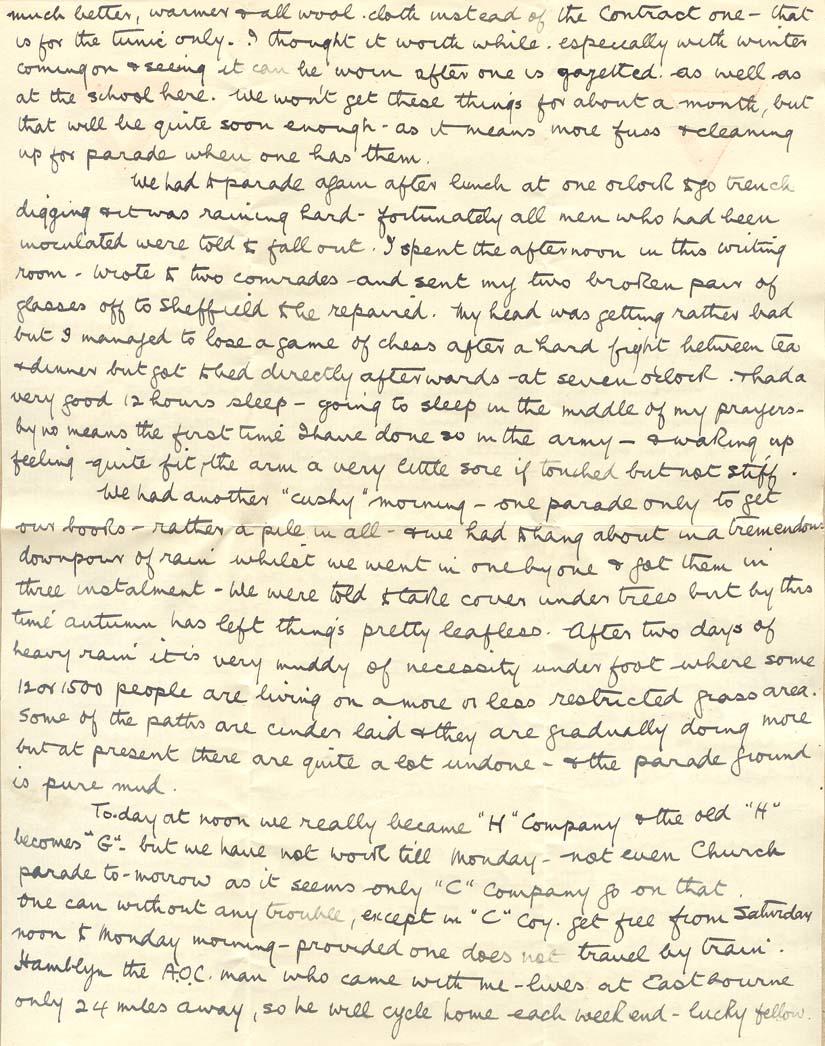 much better, warmer & all wool cloth instead of the Contract one - that
is for the tunic only. I thought it worth while especially with winter
coming on & seeing it can be worn after one is gazetted as well as
at the school here. We won't get these things for about a month, but
that will be quite soon enough - as it means more fuss & cleaning
up for parade when one has them.
We had to parade again after lunch at one oclock to go trench
digging & it was raining hard - fortunately all men who had been
inoculated were told to fall out. I spent the afternoon in this writing
room - wrote to two comrades - and sent my two broken pair of
glasses off to Sheffield to be repaired. My head was getting rather bad
but I managed to lose a game of chess after a hard fight between tea
& dinner but got to bed directly afterwards - at seven o'clock. & had a
very good 12 hours sleep - going to sleep in the middle of my prayers -
by no means the first time I have done so in the army - & waking up
feeling quite fit, the arm a very little sore if touched but not stiff.
We had another "cushy" morning - one parade only to get
our books - rather a pile in all - & we had to hang about in a tremendous
downpour of rain whilst we went in one by one & got them in
three instalment - We were told to take cover under trees but by this
time autumn has left things pretty leafless. After two days of
heavy rain it is very muddy of necessity under foot where some
12 or 1500 people are living on a more or less restricted grass area.
Some of the paths are cinder laid & they are gradually doing more
but at present there are quite a lot undone - & the parade ground
is pure mud.
To-day at noon we really became "H" Company & the old "H"
becomes "G" - but we have not work till Monday - not even Church
parade to-morrow as it seems only "C" Company go on that.
One can without any trouble, except in "C" Coy. get free from Saturday
noon to Monday morning - provided one does not travel by train.
Hamblyn the A.O.C. man who came with me - lives at Eastbourne
only 24 miles away, so he will cycle home each week end - lucky fellow.